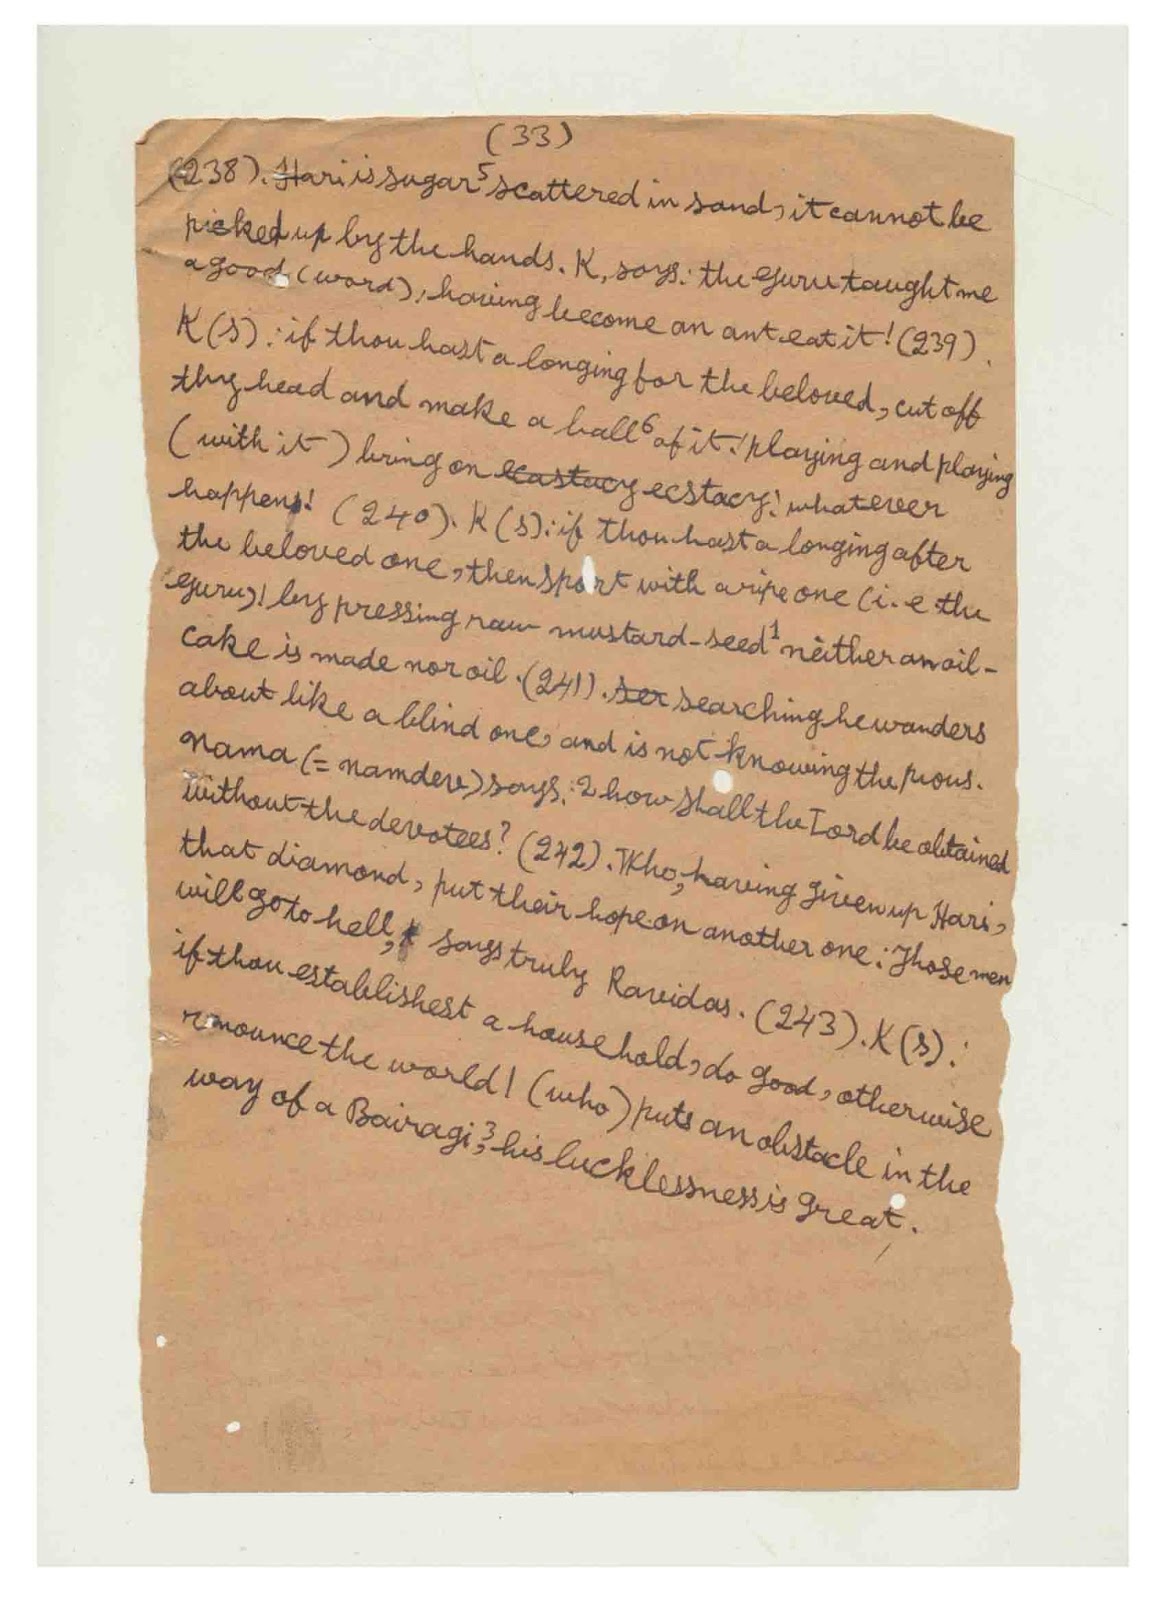 (33)
(238). Hari is sugar⁵ scattered in sand, it cannot be
picked up by the hands. K, says: the guru taught me
a good (word), having become an ant eat it! (239).
K(s): if thou hast a longing for the beloved, cut off
thy head and make a ball⁶ of it! playing and playing
(with it) bring on ecastacy ecstacy! whatever
happens! (240). K(s): if thou hast a longing after
the beloved one, then sport with a ripe one (i.e the
guru)! by pressing raw mustard-seed¹ neither an oil-
cake is made nor oil. (241). ser searching he wanders
about like a blind one, and is not knowing the pious.
Nama (= namdev) says: ² how shall the Lord be obtained
without the devotees? (242). Who, having given up Hari,
that diamond, put their hope on another one: Those men
will go to hell, says truly Ravidas. (243). K(s):
if thou establishest a household, do good, otherwise
renounce the world! (who) puts an obstacle in the
way of a Bairagi,³ his lucklessness is great.